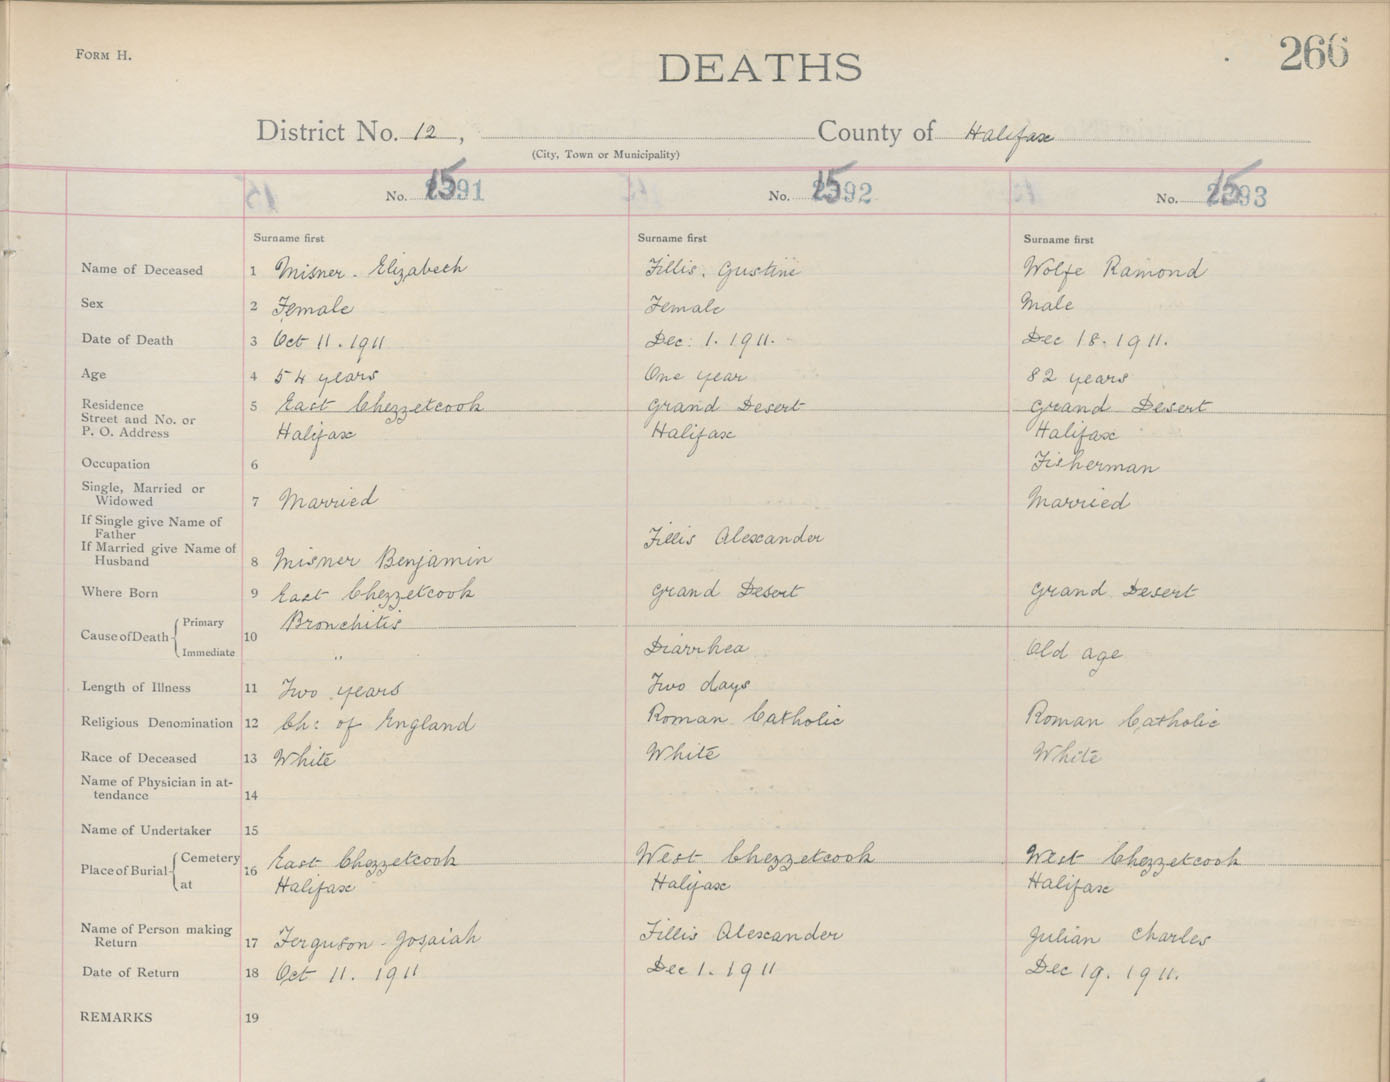 Form H.
DEATHS
266
District No. 12, County of Halifax
(City, Town or Municipality)
No. 15 2391 No. 15 2392 No. 15 2393
Surname first Surname first Surname first
Name of Deceased 1 Misner - Elizabeth Fillis. Gustine Wolfe Ramond
Sex 2 Female Female Male
Date of Death 3 Oct 11. 1911 Dec: 1. 1911. Dec 18. 1911.
Age 4 54 years One year 82 years
Residence 5 East Chezzetcook Grand Desert Grand Desert
Street and No. or
P. O. Address Halifax Halifax Halifax
Occupation 6 Fisherman
Single, Married or
Widowed 7 Married Married
If Single give Name of
Father Fillis Alexander
If Married give Name of
Husband 8 Misner Benjamin
Where Born 9 East Chezzetcook Grand Desert Grand Desert
Primary Bronchitis
Cause of Death 10
Immediate " Diarrhea Old age
Length of Illness 11 Two years Two days
Religious Denomination 12 Ch: of England Roman Catholic Roman Catholic
Race of Deceased 13 White White White
Name of Physician in at-
tendance 14
Name of Undertaker 15
Cemetery East Chezzetcook West Chezzetcook West Chezzetcook
Place of Burial 16
at Halifax Halifax Halifax
Name of Person making
Return 17 Ferguson - Josaiah Fillis Alexander Julian Charles
Date of Return 18 Oct 11. 1911 Dec 1. 1911 Dec 19. 1911.
REMARKS 19